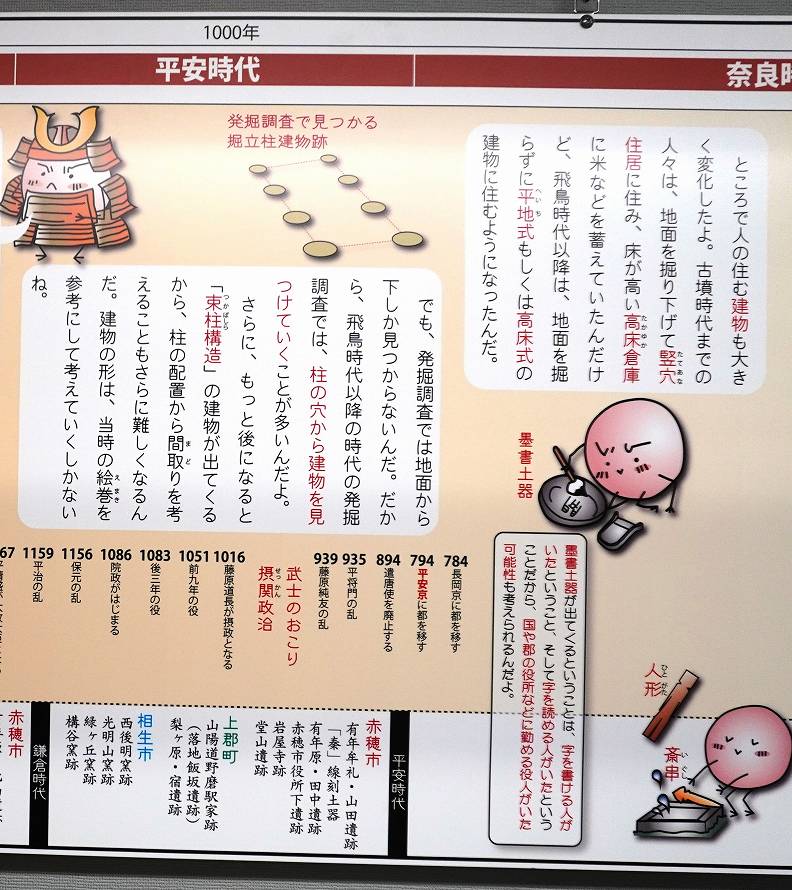 1000年
平安時代
奈良時
発掘調査で見つかる
掘立柱建物跡
ところで人の住む建物も大き
く変化したよ。古墳時代までの
人々は、地面を掘り下げて竪穴
たてあな
住居に住み、床が高い高床倉庫
たかゆか
に米などを蓄えていたんだけ
ど、飛鳥時代以降は、地面を掘
らずに平地式もしくは高床式の
へいち
建物に住むようになったんだ。
でも、発掘調査では地面から
下しか見つからないんだ。だか
ら、飛鳥時代以降の時代の発掘
調査では、柱の穴から建物を見
つけていくことが多いんだよ。
さらに、もっと後になると
「束柱構造」の建物が出てくる
つかばしら
から、柱の配置から間取りを考
まど
えることもさらに難しくなるん
だ。建物の形は、当時の絵巻を
えまき
参考にして考えていくしかない
ね。
墨書土器
墨書土器が出てくるということは、字を書ける人が
いたということ、そして字を読める人がいたという
ことだから、国や郡の役所などに勤める役人がいた
可能性も考えられるんだよ。
人形
ひとがた
斎串
いぐし
784 長岡京に都を移す
794 平安京に都を移す
894 遣唐使を廃止する
935 平将門の乱
939 藤原純友の乱
武士のおこり
摂関政治
せっかん
1016 藤原道長が摂政となる
1051 前九年の役
1083 後三年の役
1086 院政がはじまる
1156 保元の乱
1159 平治の乱
平安時代
赤穂市
有年牟礼・山田遺跡
「秦」線刻土器
有年原・田中遺跡
赤穂市役所下遺跡
岩屋寺跡
堂山遺跡
上郡町
山陽道野磨駅家跡
（落地飯坂遺跡）
梨ヶ原・宿遺跡
相生市
西後明窯跡
光明山窯跡
緑ヶ丘窯跡
構谷窯跡
鎌倉時代
赤穂市